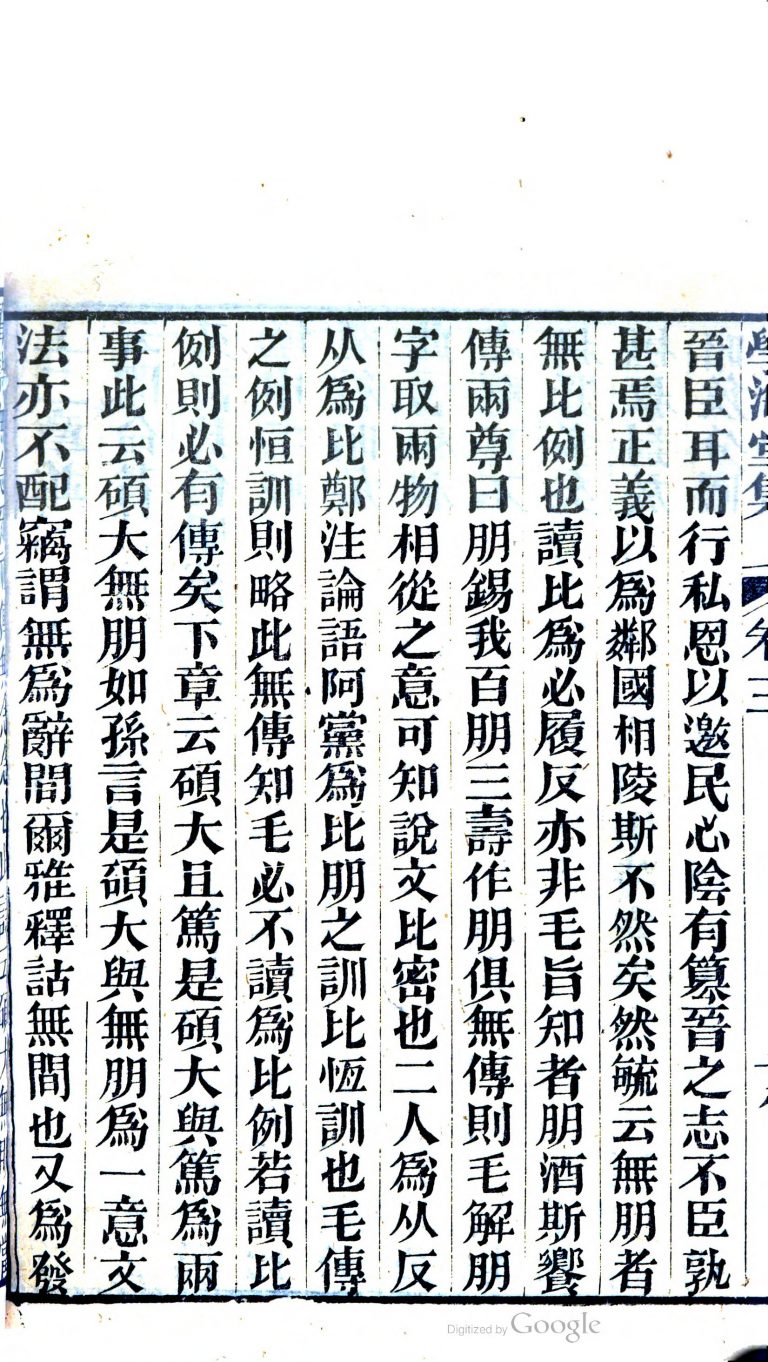 晉臣耳而行私恩以邀民心陰有篡晉之志不臣孰
甚焉正義以爲鄰國相陵斯不然矣然毓云無朋者
無比例也讀比爲必履反亦非毛旨知者朋酒斯饗
傳兩尊曰朋錫我百朋三壽作朋俱無傳則毛解朋
字取兩物相從之意可知說文比密也二人爲从反
从爲比鄭注論語阿黨爲比朋之訓比恆訓也毛傳
之例恒訓則略此無傳知毛必不讀爲比例若讀比
例則必有傳矣下章云碩大且篤是碩大與篤爲兩
事此云碩大無朋如孫言是碩大與無朋爲一意文
法亦不配竊謂無爲辭間爾雅釋詁無間也又爲發
Digitized by Google